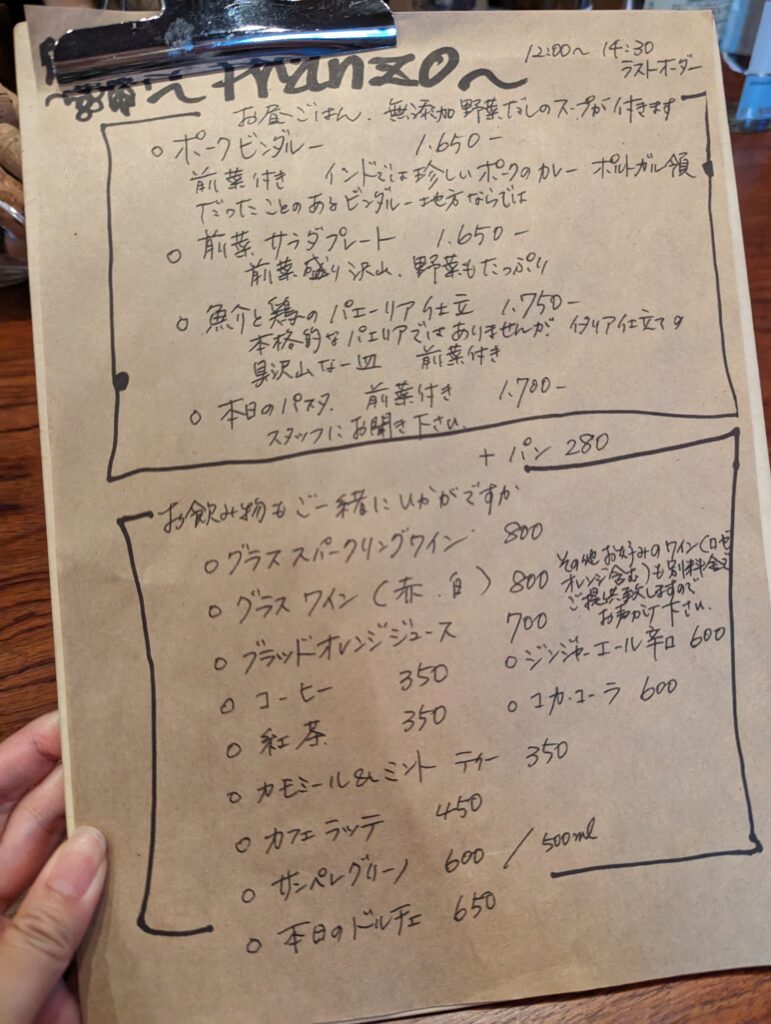 pranzo〜
12:00〜 14:30
ラストオーダー
お昼ごはん、無添加野菜だしのスープが付きます
○ ポークビンダルー 1.650−
前菜付き インドでは珍しいポークのカレー ポルトガル領
だったことのあるビンダルー地方ならでは
○ 前菜サラダプレート 1.650−
前菜盛り沢山、野菜もたっぷり
○ 魚介と鶏のパエーリア仕立 1.750−
本格的なパエリアではありませんが イタリア仕立です
具沢山な一皿 前菜付き
○ 本日のパスタ 前菜付き 1.700−
スタッフにお聞き下さい
+ パン 280
お飲み物もご一緒にいかがですか
○ グラス スパークリングワイン 800
○ グラス ワイン (赤、白) 800
その他お好みのワイン(ロゼ
オレンジ含む)も別料金で
ご提供致しますので
お声がけ下さい
○ ブラッドオレンジジュース 700
○ コーヒー 350
○ 紅茶 350
○ カモミール&ミント ティー 350
○ カフェラッテ 450
○ サンペレグリーノ 600 / 500ml
○ 本日のドルチェ 650
○ ジンジャーエール辛口 600
○ コカ・コーラ 600